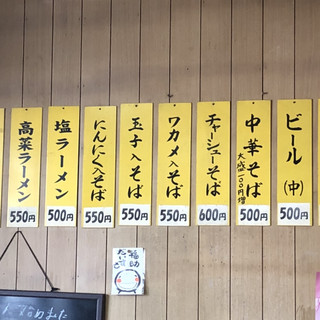 ビール(中)
500円
中華そば
大盛一〇〇円増
500円
チャーシューそば
600円
ワカメ入そば
550円
玉子入そば
550円
にんにく入そば
550円
塩ラーメン
500円
高菜ラーメン
550円
福助